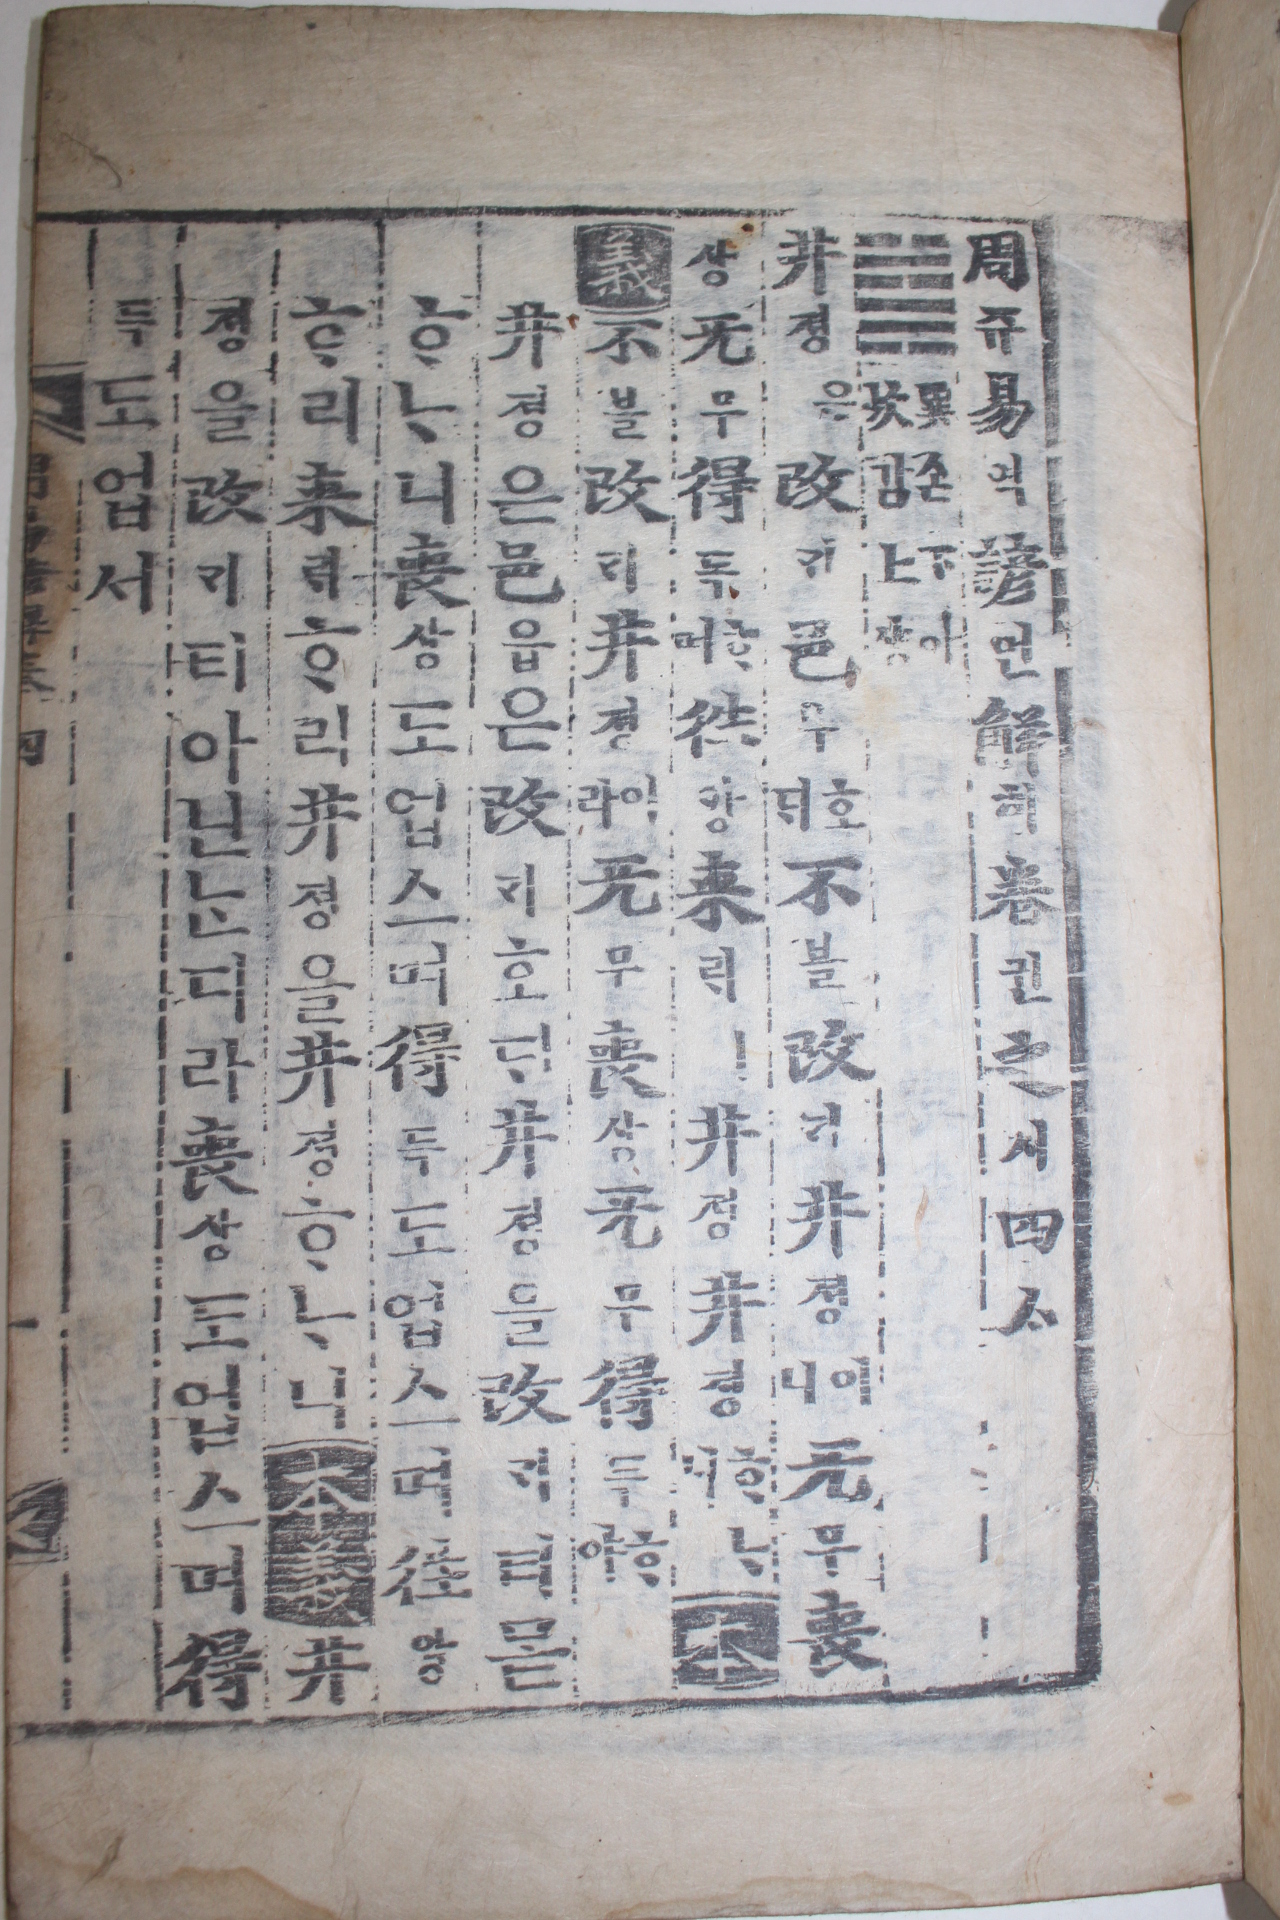 周쥬易역諺언解ᄒᆡ卷권之지四ᄉ
䷯ 巽손下하 坎감上샹
井졍은改ᄀᆡ邑읍호ᄃᆡ不블改ᄀᆡ井졍이니无무喪
상无무得득ᄒᆞ며往왕來ᄅᆡㅣ井졍井졍ᄒᆞᄂᆞ니本
義不블改ᄀᆡ井졍이라无무喪상无무得득ᄒᆞ야
井졍은邑읍은改ᄀᆡ호ᄃᆡ井졍을改ᄀᆡ티몯
ᄒᆞᄂᆞ니喪상도업스며得득도업스며往왕
ᄒᆞ리來ᄅᆡᄒᆞ리井졍을井졍ᄒᆞᄂᆞ니本義井
졍을改ᄀᆡ티아닌ᄂᆞᆫ디라喪상도업스며得
득도업서
周易諺解卷四 一